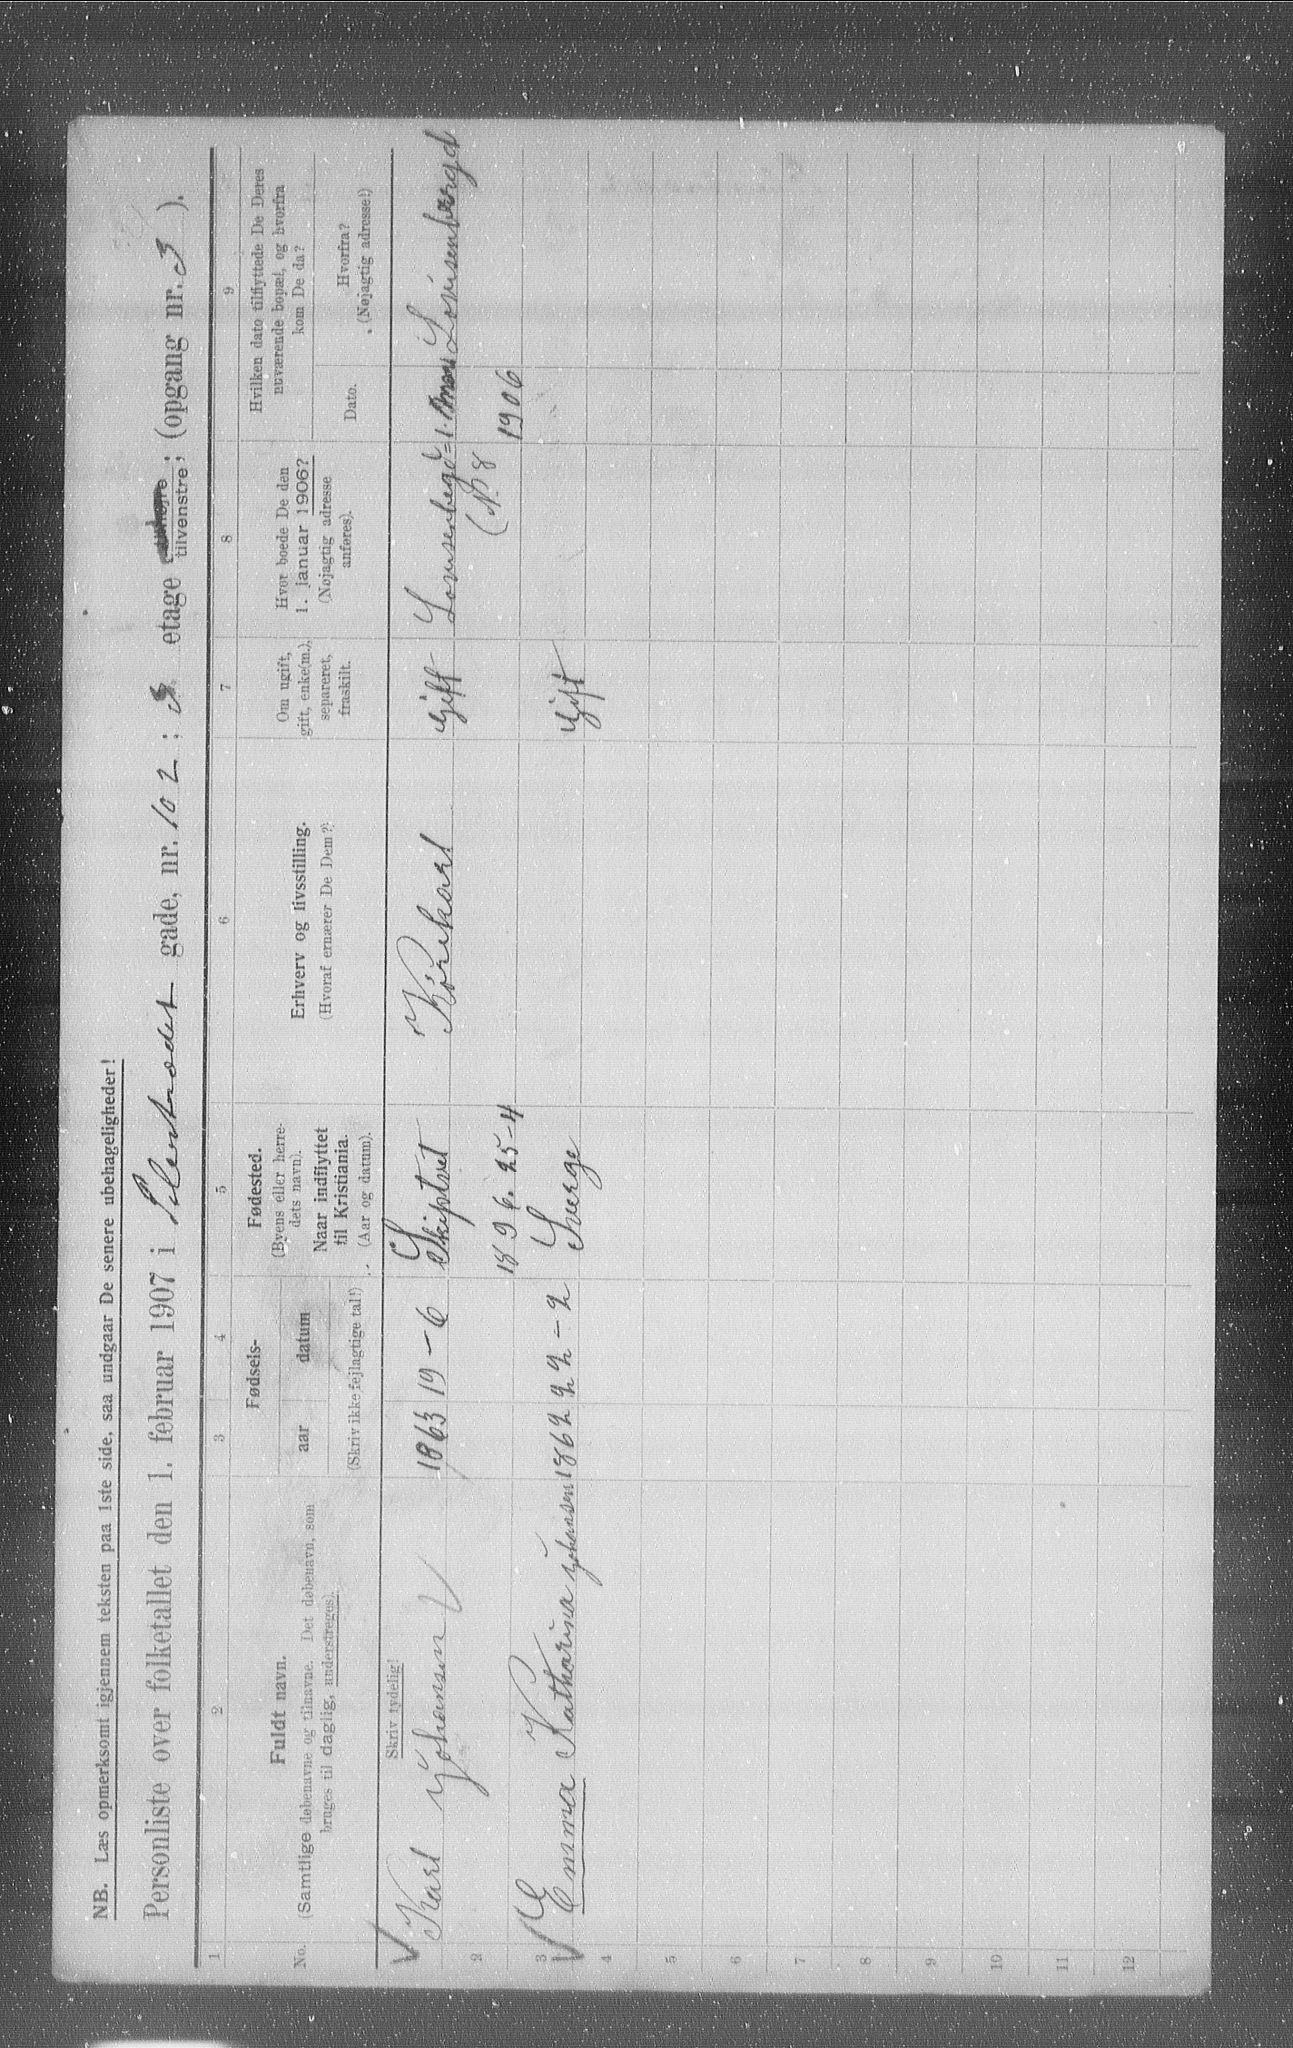 NB. Læs opmerksomt igjennem teksten paa 1ste side, saa undgaar De senere ubehageligheder!
Personliste over folketallet den 1. februar 1907 i gade, nr. 102 ; 3 etage tilhøjre tilvenstre; (opgang nr. 3 ).
1 2 3 4 5 6 7 8 9
No.
Fuldt navn.
(Samtlige døbenavne og tilnavne. Det døbenavn, som
bruges til daglig, understreges).
Fødsels-
aar datum
(Skriv ikke fejlagtige tal!)
Fødested.
(Byens eller herre-
dets navn).
Naar indflyttet
til Kristiania.
(Aar og datum).
Erhverv og livsstilling.
(Hvoraf ernærer De Dem?)
Om ugift,
gift, enke(m.),
separeret,
fraskilt.
Hvor boede De den
1. januar 1906?
(Nøjagtig adresse
anføres).
Hvilken dato tilflyttede De Deres
nuværende bopæl, og hvorfra
kom De da?
Dato.
Hvorfra?
(Nøjagtig adresse!)
Skriv tydelig!
Karl Johansen 1863 19-6 Skiptvet Kørekarl Gift Lovisenbergd 1. Lovisenbergd
2 1896. 25-4 (N. 8 1906
3 Emma Katharina Johansen 1862 22-2 Sverge Gift
4
5
6
7
8
9
10
11
12